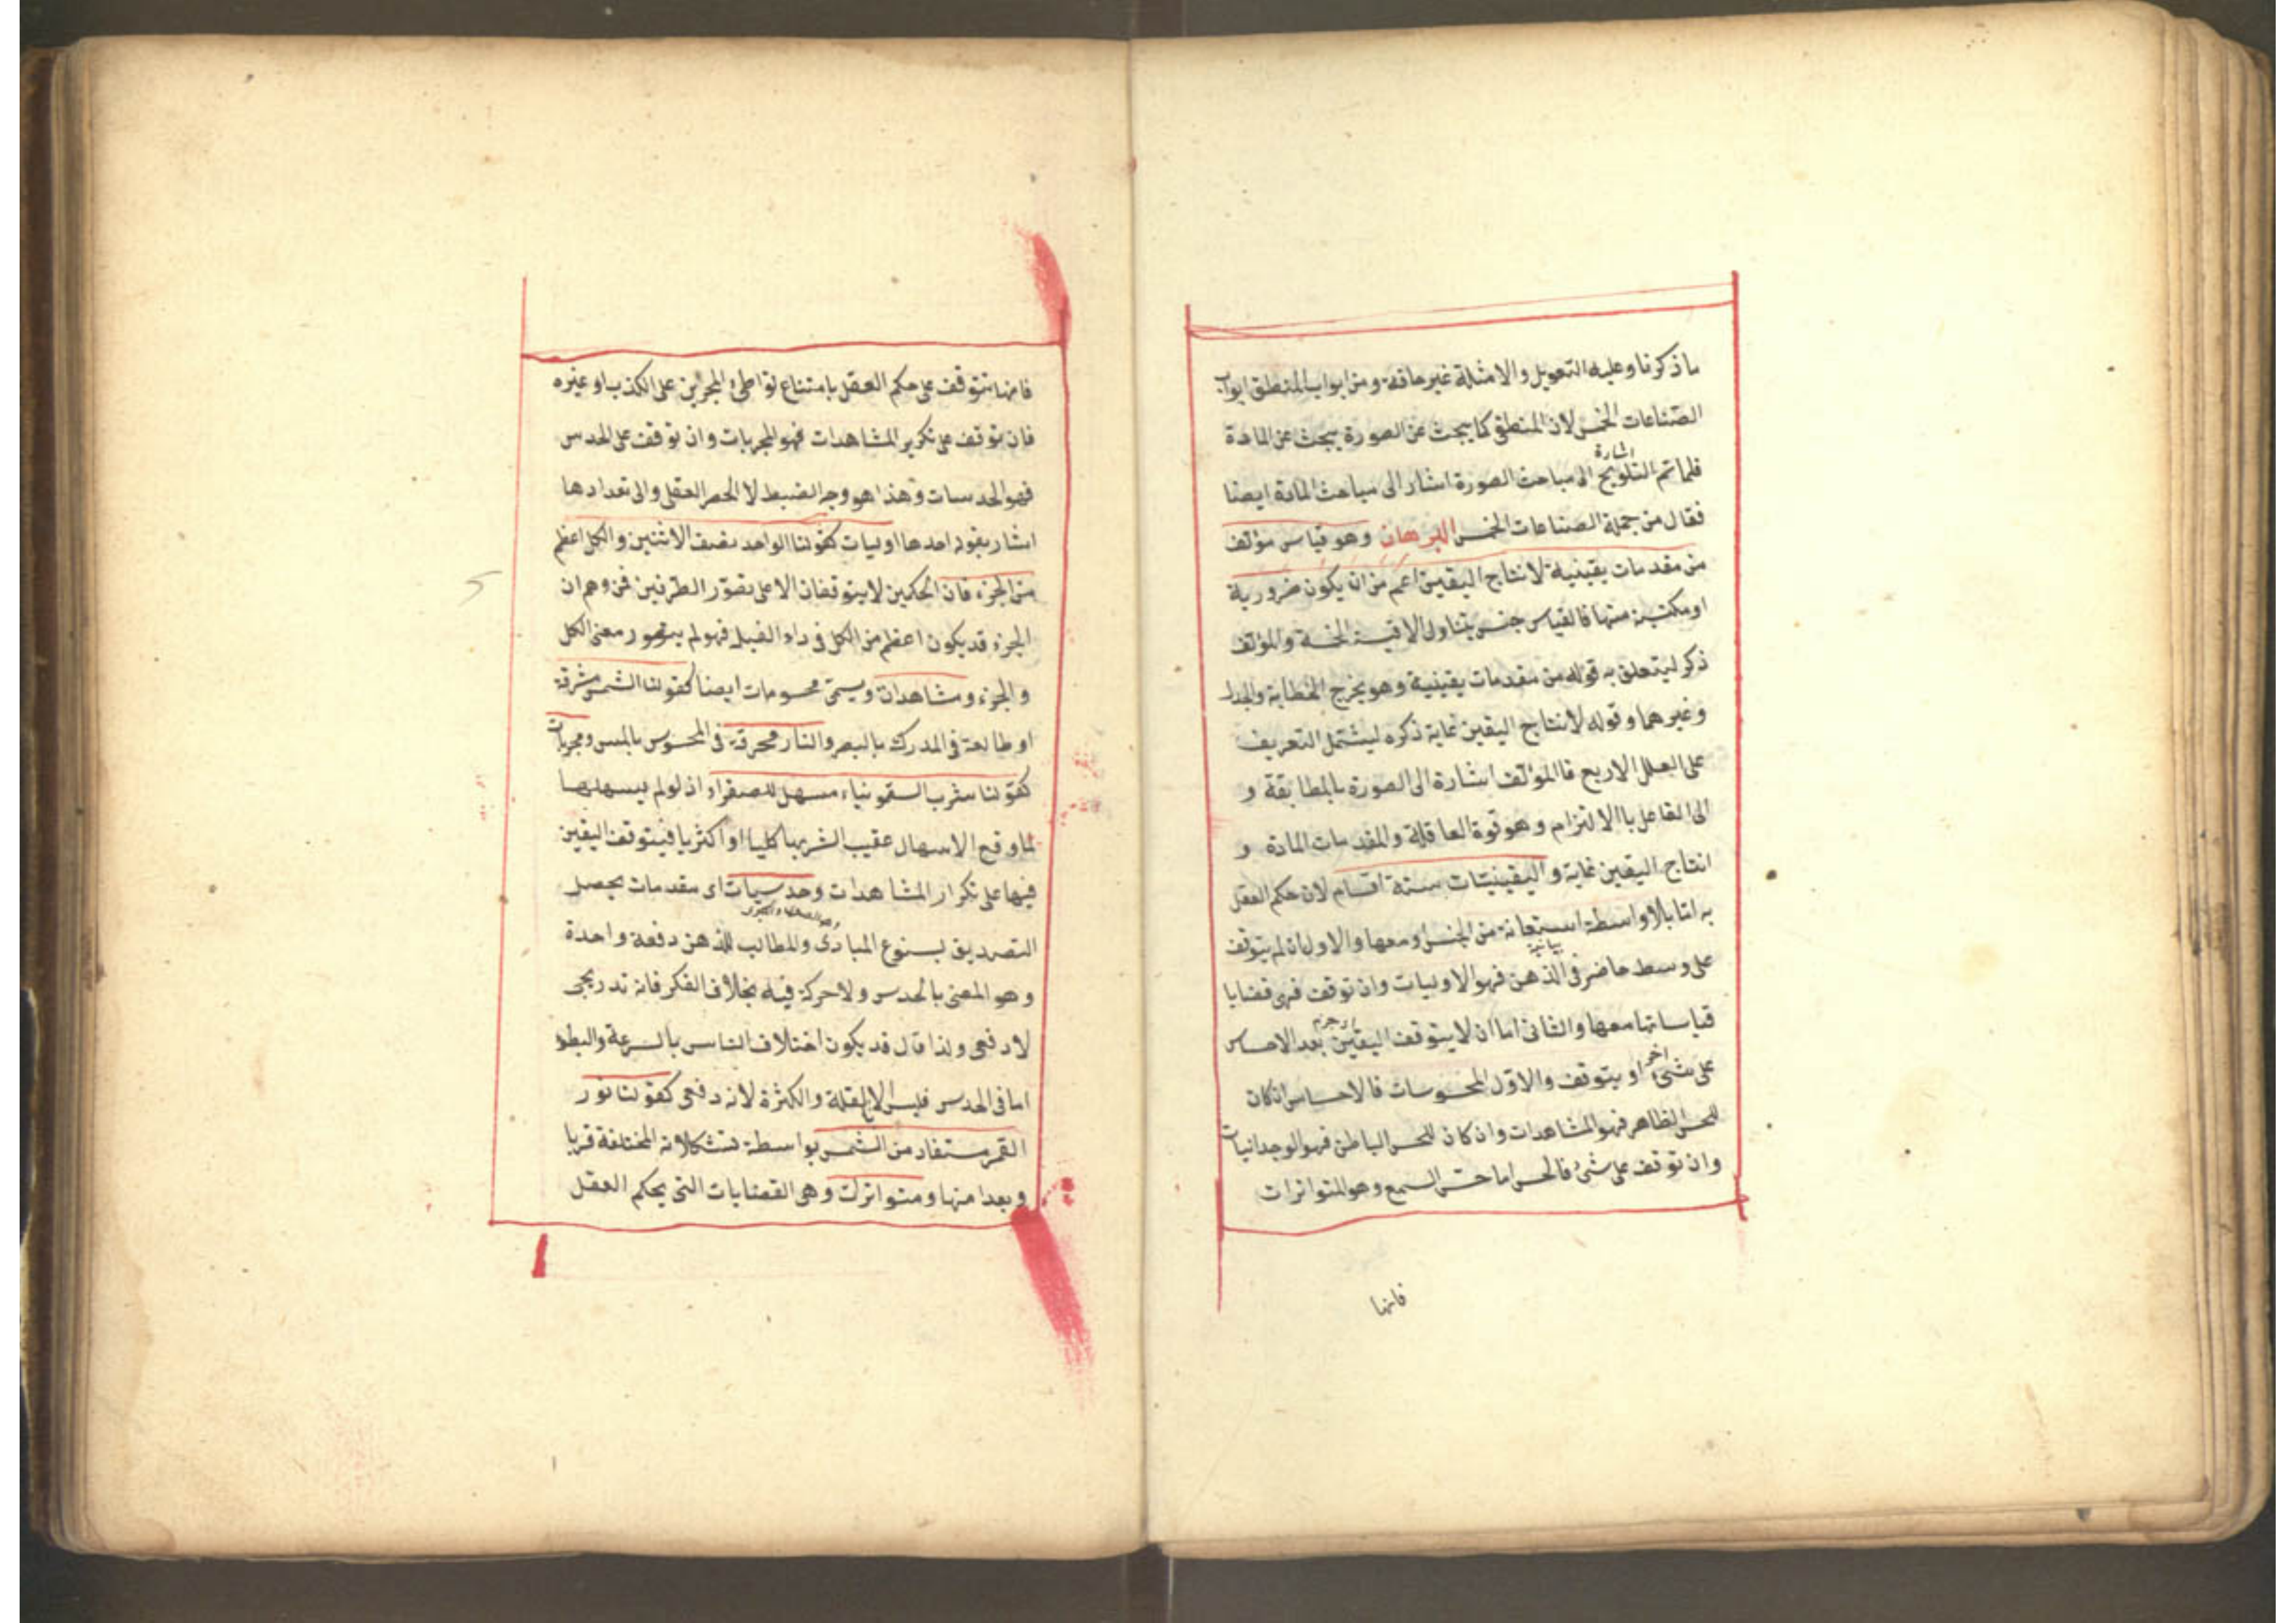 ما ذكرنا وعليه التعويل والامثلة غير خافية ومن ابواب المنطق ابواب
الصناعات الخمس لان المنطقى كما يبحث عن الصورة يبحث عن المادة
اشارة
فلما تم التلويح الى مباحث الصورة اشار الى مباحث المادة ايضا
فقال من جملة الصناعات الخمس البرهان وهو قياس مؤلف
من مقدمات يقينية لانتاج اليقين اعم من ان يكون ضرورية
او مكتسبة منها فالقياس جنس يتناول الاقيسة الخمسة والمؤلف
ذكر ليتعلق به قوله من مقدمات يقينية وهو يخرج الخطابة والجدل
وغيرهما وقوله لانتاج اليقين غاية ذكره ليشتمل التعريف
على العلل الاربع فالمؤلف اشارة الى الصورة بالمطابقة و
الى الفاعل باالالتزام وهو قوة العاقلة والمقدمات المادة و
انتاج اليقين غاية و اليقينيات ستة اقسام لان حكم العقل
به اما بلا واسطة استعانة من الحس او معها والاول ان لم يتوقف
على وسط حاضر فى الذهن فهو الاوليات وان توقف فهى قضايا
قياساتها معها والثانى اما ان لا يتوقف اليقين بعد الاحساس
على شئ اخر او يتوقف والاول المحسوسات فالاحساس ان كان
للحس الظاهر فهو المشاهدات وان كان للحس الباطن فهو الوجدانيات
وان توقف على شئ فالحس اما حس السمع وهو المتواترات
فانها
فانها تتوقف على حكم العقل بامتناع تواطئ المخبرين على الكذب او غيره
فان توقف على تكرير المشاهدات فهو المجربات وان توقف على الحدس
فهو الحدسيات وهذا هو وجه الضبط لا الحصر العقلى والى تعدادها
اشار بقوله احدها اوليات كقولنا الواحد نصف الاثنين والكل اعظم
من الجزء فان الحكمين لا يتوقفان الا على تصور الطرفين فمن وهم ان
الجزء قد يكون اعظم من الكل فى داء الفيل فهو لم يتصور معنى الكل
والجزء ومشاهدات ويسمى محسوسات ايضا كقولنا الشمس مشرقة
او طالعة فى المدرك بالبصر والنار محرقة فى المحسوس باللمس ومجربات
كقولنا شرب السقمونياء مسهل للصفراء اذ لو لم يسهلها
لما وقع الاسهال عقيب الشرب كليا او اكثريا فيتوقف اليقين
فيها على تكرار المشاهدات وحدسيات اى مقدمات يحصل
التصديق بسنوع المبادئ والمطالب للذهن دفعة واحدة
وهو المعنى بالحدس ولا حركة فيه بخلاف الفكر فانه تدريجى
لا دفعى ولذا قال قد يكون اختلاف الناس بالسرعة والبطؤ
اما فى الحدس فليس الا بالقلة والكثرة لانه دفعى كقولنا نور
القمر مستفاد من الشمس بواسطة تشكلاته المختلفة قربا
وبعدا منها ومتواترات وهى القضايات التى يحكم العقل